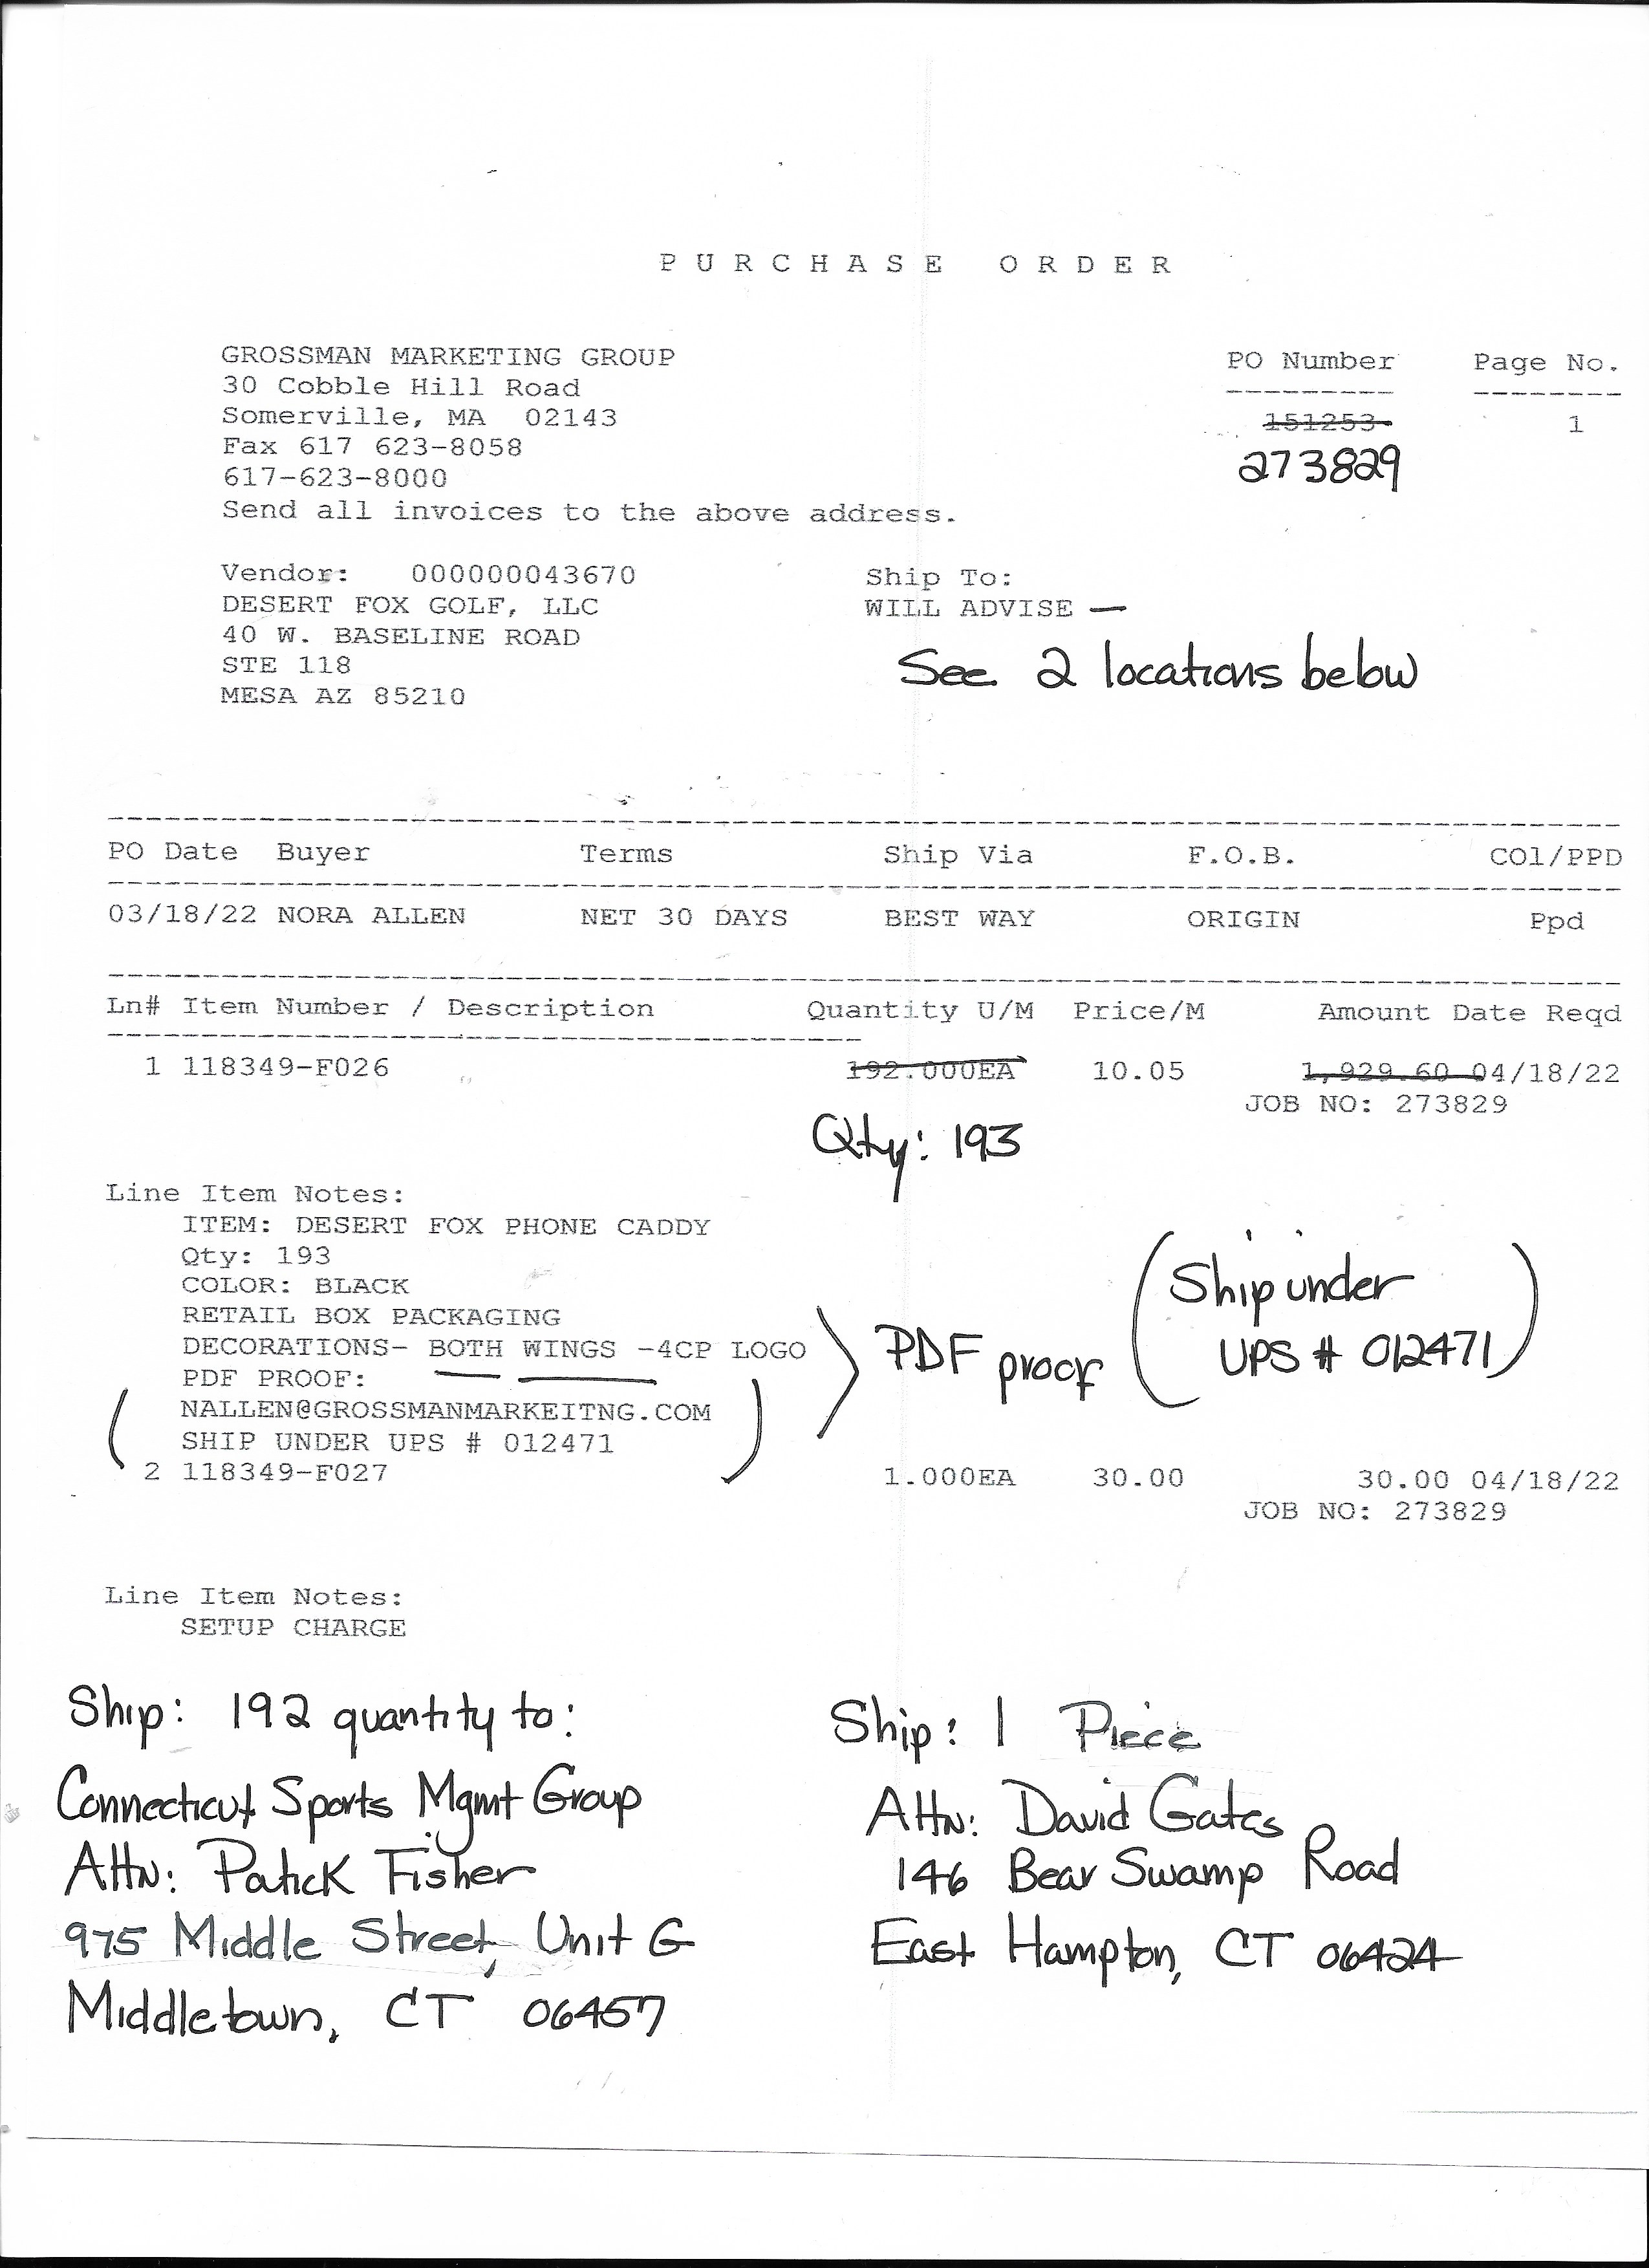 PURCHASE ORDER
GROSSMAN MARKETING GROUP
30 Cobble Hill Road
Somerville, MA 02143
Fax 617 623-8058
617-623-8000
Send all invoices to the above address.
PO Number Page No.
151253 1
273829
Vendor: 000000043670
DESERT FOX GOLF, LLC
40 W. BASELINE ROAD
STE 118
MESA AZ 85210
Ship To:
WILL ADVISE —
See 2 locations below
PO Date Buyer Terms Ship Via F.O.B. COl/PPD
03/18/22 NORA ALLEN NET 30 DAYS BEST WAY ORIGIN Ppd
Ln# Item Number / Description Quantity U/M Price/M Amount Date Reqd
1 118349-F026 192.000EA 10.05 1,929.60 04/18/22
JOB NO: 273829
Qty: 193
Line Item Notes:
ITEM: DESERT FOX PHONE CADDY
Qty: 193
COLOR: BLACK
RETAIL BOX PACKAGING
DECORATIONS- BOTH WINGS -4CP LOGO
PDF PROOF:
NALLEN@GROSSMANMARKEITNG.COM
SHIP UNDER UPS # 012471
PDF proof
(Ship under
UPS # 012471)
2 118349-F027 1.000EA 30.00 30.00 04/18/22
JOB NO: 273829
Line Item Notes:
SETUP CHARGE
Ship: 192 quantity to:
Connecticut Sports Mgmt Group
Attn: Patick Fisher
975 Middle Street, Unit G
Middletown, CT 06457
Ship: 1 Piece
Attn: David Gates
146 Bear Swamp Road
East Hampton, CT 06424